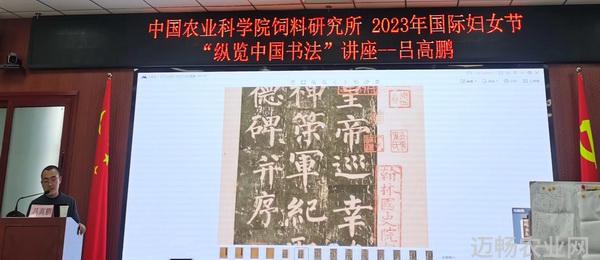 中国农业科学院饲料研究所 2023年国际妇女节
“纵览中国书法”讲座--吕高鹏
皇帝巡幸
神策軍紀聖
德碑并序
翰林國史院
吕高鹏
迈畅农业网